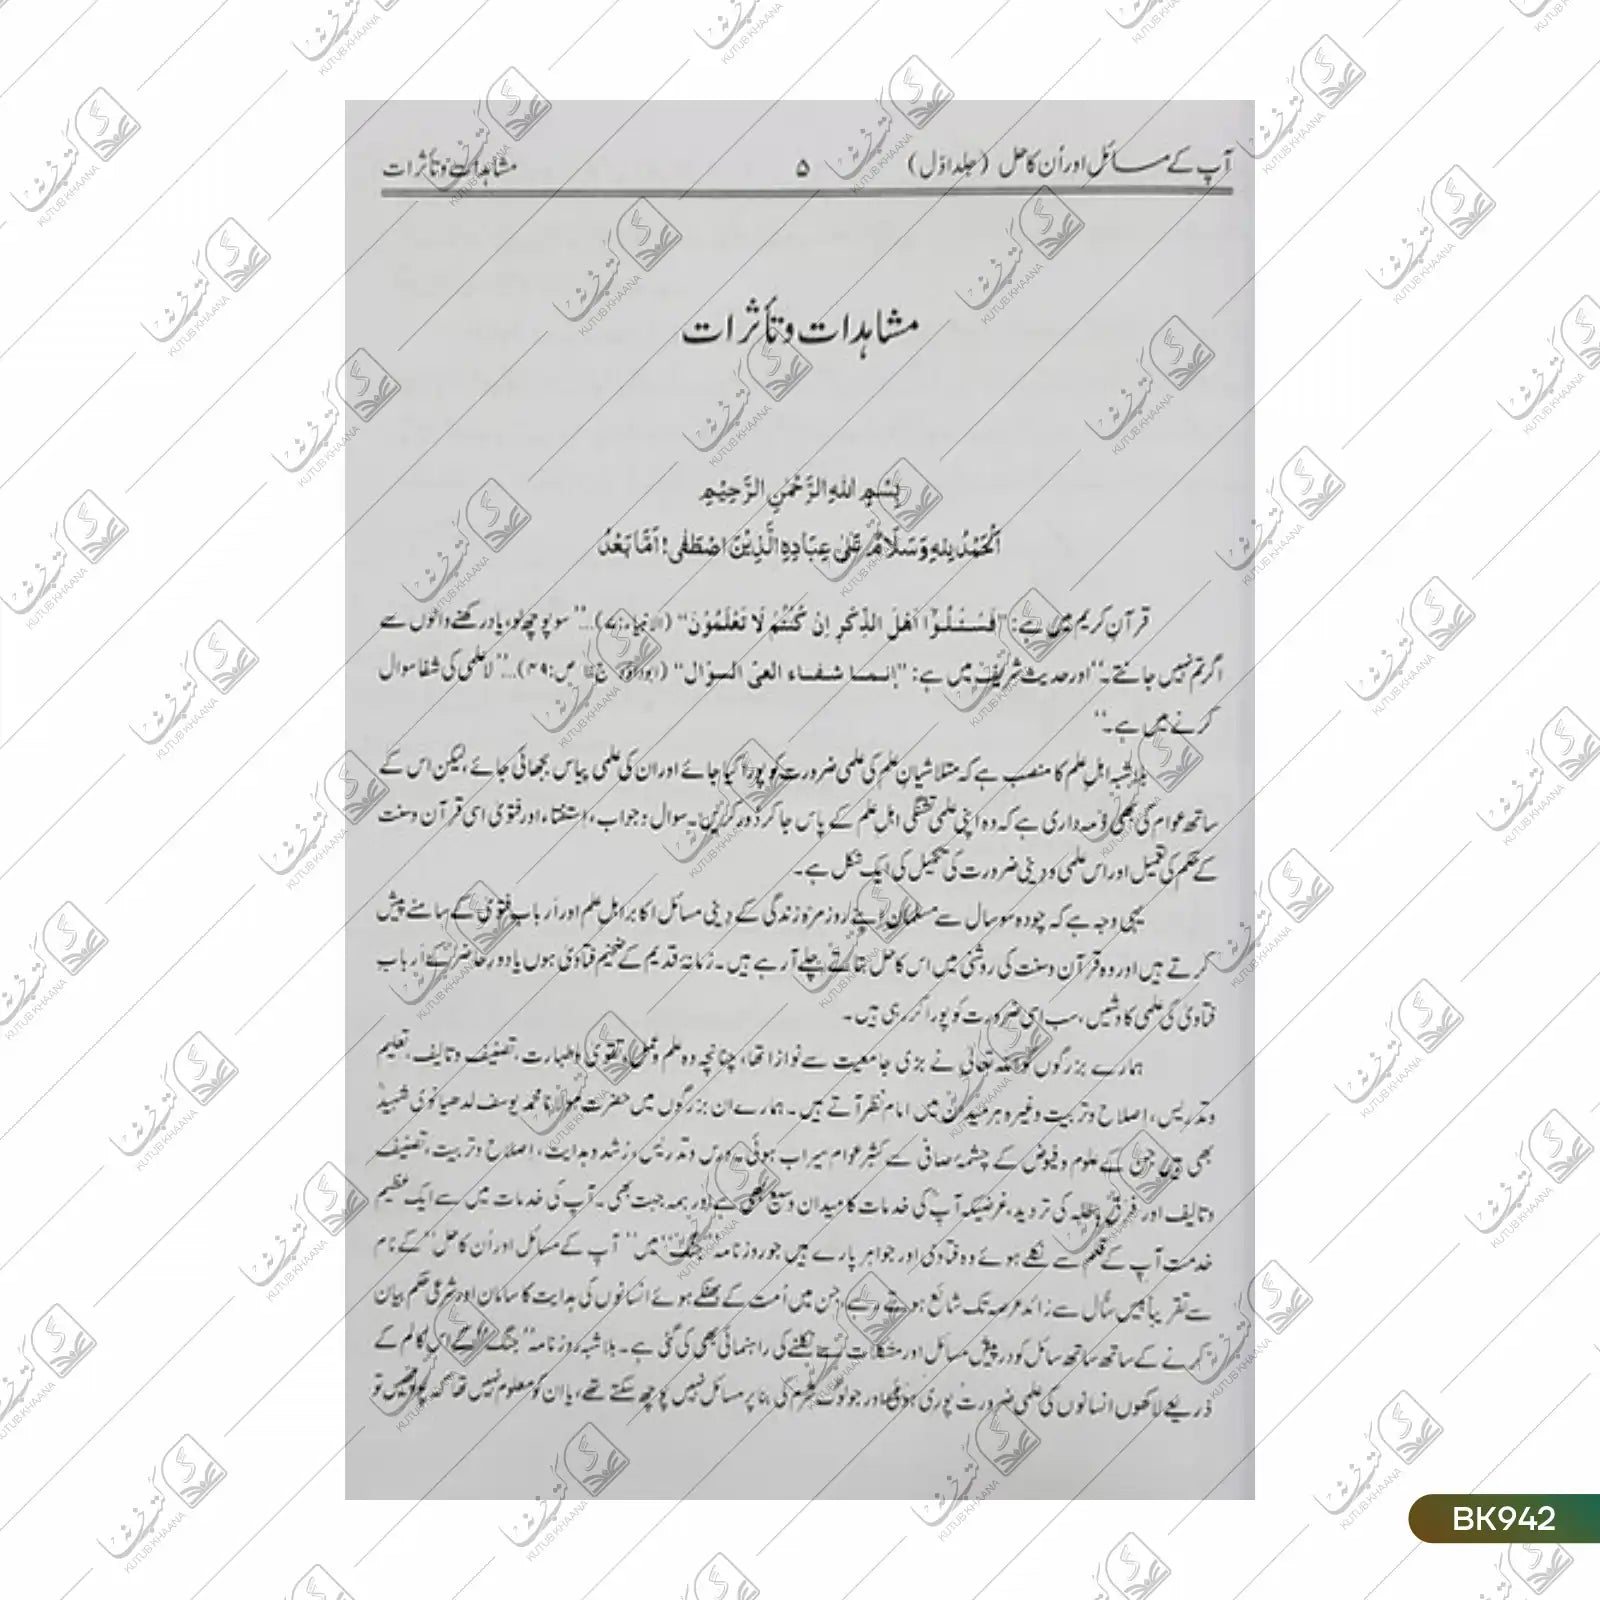 آپ کے مسائل اور اُن کا حل (جلد اوّل) ۵ مشاہدات و تأثرات
مشاہدات و تأثرات
بِسْمِ اللهِ الرَّحْمٰنِ الرَّحِيْمِ
اَلْحَمْدُ لِلهِ وَسَلَامٌ عَلٰى عِبَادِهِ الَّذِيْنَ اصْطَفٰى! اَمَّا بَعْدُ
قرآنِ کریم میں ہے: "فَسْـَٔلُوْٓا اَهْلَ الذِّكْرِ اِنْ كُنْتُمْ لَا تَعْلَمُوْنَ" (الانبیاء:۷)... "سو پوچھ لو، یاد رکھنے والوں سے
اگر تم نہیں جانتے۔" اور حدیث شریف میں ہے: "انما شفاء العی السؤال" (ابوداؤد ص:۴۹)... "لاعلمی کی شفا سوال
کرنے میں ہے۔"
بلاشبہ اہلِ علم کا منصب ہے کہ متلاشیانِ علم کی علمی ضرورت کو پورا کیا جائے اور ان کی علمی پیاس بجھائی جائے، لیکن اس کے
ساتھ عوام کی بھی ذمہ داری ہے کہ وہ اپنی علمی تشنگی اہلِ علم کے پاس جا کر دُور کریں۔ سوال و جواب، اِستفتاء اور فتویٰ اسی قرآن و سنت
کے حکم کی تعمیل اور اس علمی و دینی ضرورت کی تکمیل کی ایک شکل ہے۔
یہی وجہ ہے کہ چودہ سو سال سے مسلمان اپنے روزمرّہ زندگی کے دینی مسائل اکابر اہلِ علم اور اَربابِ فتویٰ کے سامنے پیش
کرتے ہیں اور وہ قرآن و سنت کی روشنی میں اس کا حل بتاتے چلے آرہے ہیں۔ زمانۂ قدیم کے ضخیم فتاویٰ ہوں یا دورِ حاضر کے اَرباب
فتاویٰ کی علمی کاوشیں، سب اسی ضرورت کو پورا کر رہی ہیں۔
ہمارے بزرگوں کو اللہ تعالیٰ نے بڑی جامعیت سے نوازا تھا، چنانچہ وہ علم و عمل، تقویٰ و طہارت، تصنیف و تالیف، تعلیم
و تدریس، اصلاح و تربیت وغیرہ ہر میدان میں امام نظر آتے ہیں۔ ہمارے ان بزرگوں میں حضرت مولانا محمد یوسف لدھیانوی شہیدؒ
بھی ہیں جن کے علوم و فیوض کے چشمۂ صافی سے کثیر عوام سیراب ہوئی۔ درس و تدریس، رُشد و ہدایت، اصلاح و تربیت، تصنیف
و تالیف اور فرقِ باطلہ کی تردید، غرضیکہ آپ کی خدمات کا میدان وسیع بھی ہے اور ہمہ جہت بھی۔ آپ کی خدمات میں سے ایک عظیم
خدمت آپ کے قلم سے نکلے ہوئے وہ فتاویٰ اور جواہر پارے ہیں جو روزنامہ "جنگ" میں "آپ کے مسائل اور اُن کا حل" کے نام
سے تقریباً بیس سال سے زائد عرصہ تک شائع ہوتے رہے، جن میں اُمت کے بھٹکے ہوئے انسانوں کی ہدایت کا سامان اور شرعی حکم بیان
کرنے کے ساتھ ساتھ سائل کو درپیش مسائل اور مشکلات سے نکلنے کی راہنمائی بھی کی گئی ہے۔ بلاشبہ روزنامہ "جنگ" کے اس کالم کے
ذریعے لاکھوں انسانوں کی علمی ضرورت پوری ہوئی اور جو لوگ شرم کی بنا پر مسائل نہیں پوچھ سکتے تھے، یا ان کو معلوم نہیں تھا کہ پوچھیں تو
BK942
کتب خانہ
KUTUB KHAANA